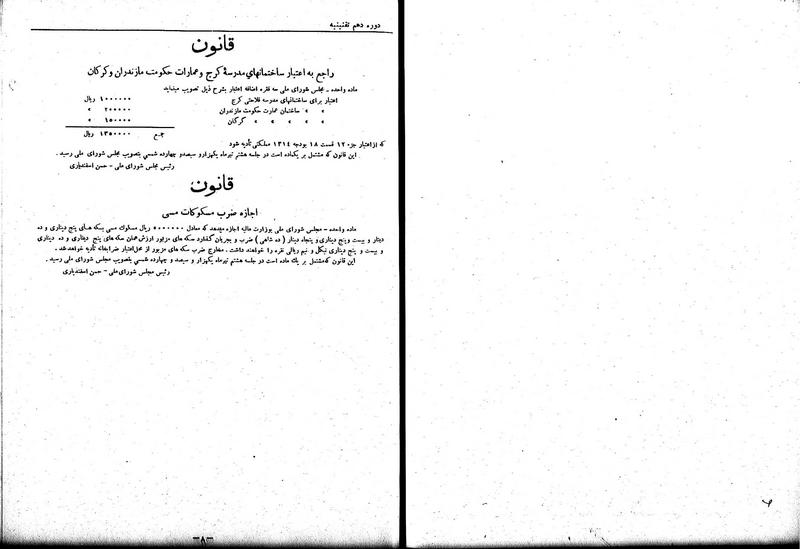 دوره دهم تقنینیه
قانون
راجع به اعتبار ساختمانهای مدرسهٔ کرج و عمارات حکومت مازندران و کرکان
ماده واحده - مجلس شورای ملی سه فقره اضافه اعتبار بشرح ذیل تصویب مینماید
اعتبار برای ساختمانهای مدرسه فلاحتی کرج ۱۰۰۰۰۰۰ ریال
» » ساختمان عمارت حکومت مازندران ۲۰۰۰۰۰ »
» » » » » کرکان ۱۵۰۰۰۰ »
جمع ۱۳۵۰۰۰۰ ریال
که از اعتبار جزء ۱۲ قسمت ۱۸ بودجه ۱۳۱۴ مملکتی تأدیه شود
این قانون که مشتمل بر یکماده است در جلسه هشتم تیرماه یکهزار و سیصد و چهارده شمسی بتصویب مجلس شورای ملی رسید .
رئیس مجلس شورای ملی - حسن اسفندیاری
قانون
اجازه ضرب مسکوکات مسی
ماده واحده - مجلس شورای ملی بوزارت مالیه اجازه میدهد که معادل ۵۰۰۰۰۰۰ ریال مسکوک مسی بسکه های پنج دیناری و ده
دینار و بیست و پنج دیناری و پنجاه دینار ( ده شاهی ) ضرب و بجریان گذارد سکه های مزبور ارزش همان سکه های پنج دیناری و ده دیناری
و بیست و پنج دیناری نیکل و نیم ریالی نقره را خواهند داشت . مخارج ضرب سکه های مزبور از محل اعتبار ضرابخانه تأدیه خواهد شد .
این قانون که مشتمل بر یک ماده است در جلسه هشتم تیرماه یکهزار و سیصد و چهارده شمسی بتصویب مجلس شورای ملی رسید .
رئیس مجلس شورای ملی - حسن اسفندیاری
-۸-